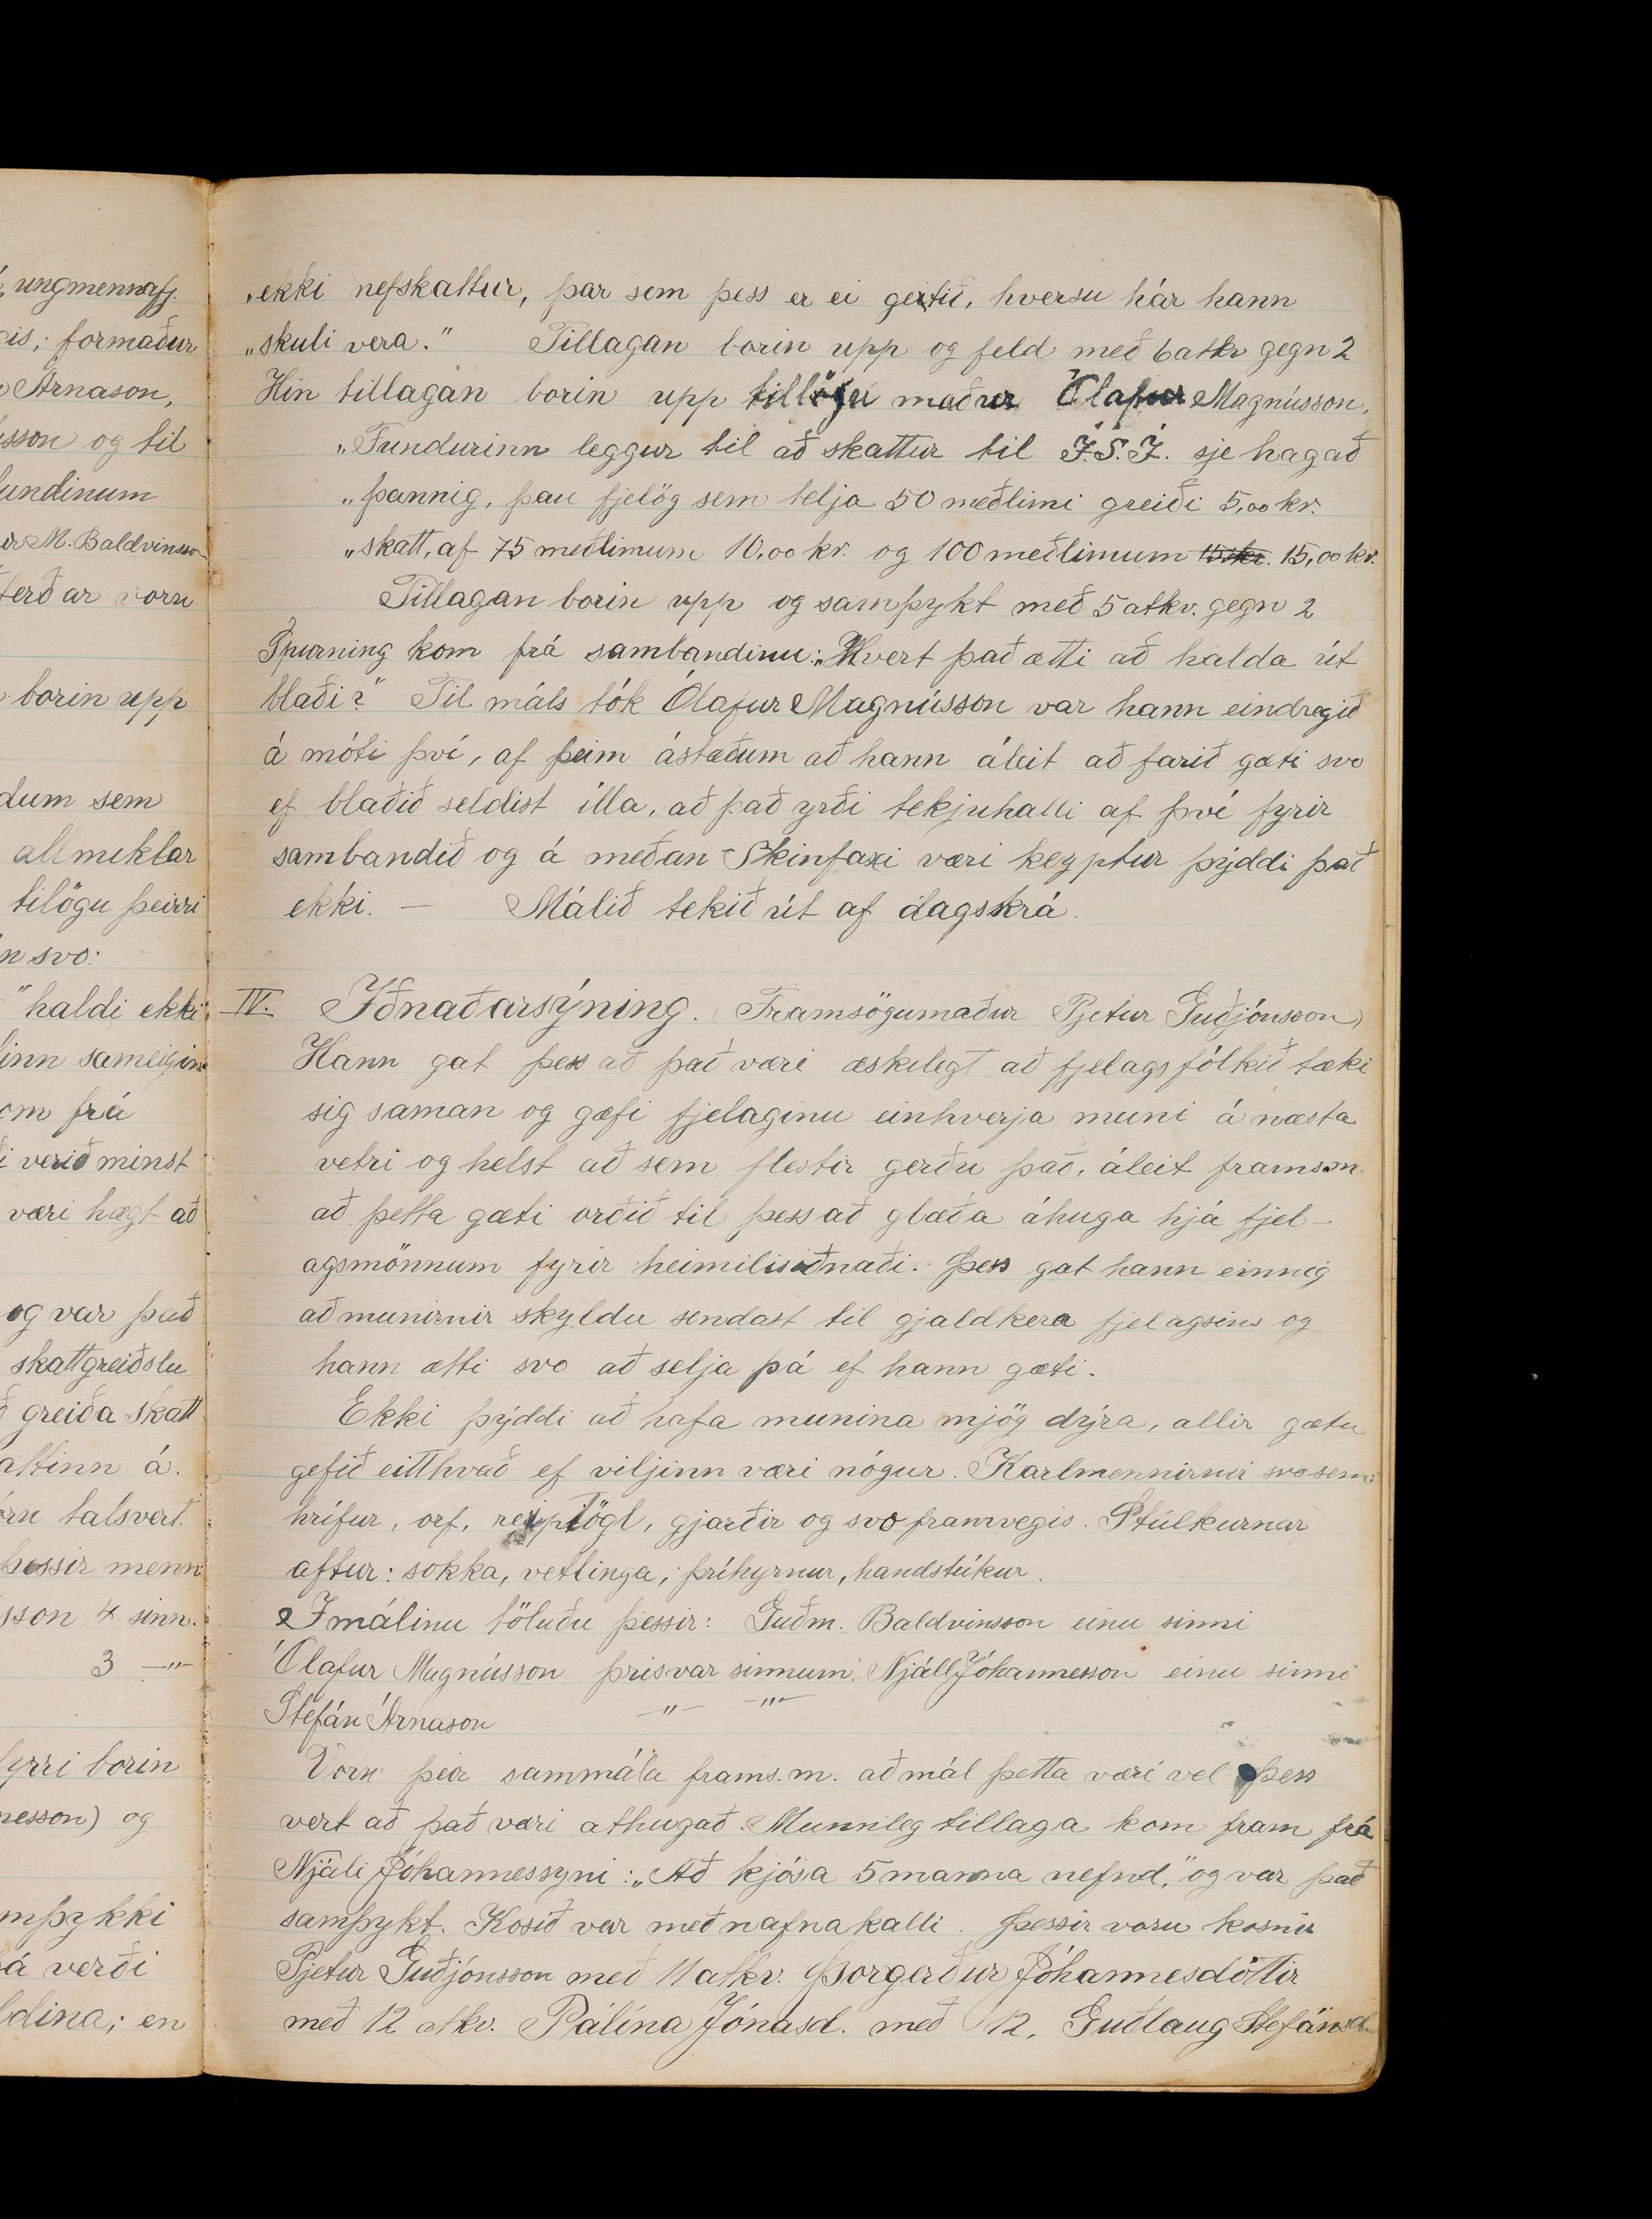 ungmennafj.
is; formaður
Árnason,
sson og til
undinum
ir M. Baldvinsson
ferðar voru
borin upp
dum sem
allmiklar
tilögu þeirri
n svo:
" haldi ekki
inn sameigin
om frá
i verið minst
væri hægt að
og var það
skattgreiðslu
ð greiða skatt
attinn á.
óru talsvert
þessir menn
sson 4 sinn.
3 —"—
fyrri borin
nesson) og
mþykki
á verði
ldina; en
„ekki nefskattur, þar sem þess er ei getið, hversu hár hann
„skuli vera." Tillagan borin upp og feld með 6 atkv gegn 2
Hin tillagan borin upp tillögu maður Ólafur Magnússon.
„Fundurinn leggur til að skattur til Í.S.Í. sje hagað
„þannig, þau fjelög sem telja 50 meðlimi greiði 5,00 kr.
„skatt, af 75 meðlimum 10,00 kr. og 100 meðlimum 15 kr. 15,00 kr.
Tillagan borin upp og samþykt með 5 atkv. gegn 2
Spurning kom frá sambandinu: „Hvert það ætti að halda út
blaði?" Til máls tók Ólafur Magnússon var hann eindregið
á móti því, af þeim ástæðum að hann áleit að farið gæti svo
ef blaðið seldist illa, að það yrði tekjuhalli af því fyrir
sambandið og á meðan Skinfaxi væri keyptur þýddi það
ekki. — Málið tekið út af dagskrá.
IV. Iðnaðarsýning. (Framsögumaður Pjetur Guðjónsson)
Hann gat þess að það væri æskilegt að fjelagsfólkið tæki
sig saman og gæfi fjelaginu einhverja muni á næsta
vetri og helst að sem flestir gerðu það, áleit framsm.
að þetta gæti orðið til þess að glæða áhuga hjá fjel-
agsmönnum fyrir heimilisiðnaði. Þess gat hann einnig
að munirnir skyldu sendast til gjaldkera fjelagsins og
hann ætti svo að selja þá ef hann gæti.
Ekki þýddi að hafa munina mjög dýra, allir gætu
gefið eitthvað ef viljinn væri nógur. Karlmennirnir svo sem:
hrífur, orf, reiptögl, gjarðir og svo framvegis. Stúlkurnar
aftur: sokka, vetlinga, þríhyrnur, handstúkur.
Í málinu töluðu þessir: Guðm. Baldvinsson einu sinni
Ólafur Magnússon þrisvar sinnum. Njáll Jóhannesson einu sinni
Stefán Árnason —"— —"—
Voru þeir sammála frams.m. að mál þetta væri vel þess
vert að það væri athugað. Munnleg tillaga kom fram frá
Njáli Jóhannessyni: „Að kjósa 5 manna nefnd," og var það
samþykt. Kosið var með nafnakalli. Þessir voru kosnir
Pjetur Guðjónsson með 11 atkv. Þorgerður Jóhannesdóttir
með 12 atkv. Pálína Jónasd. með 12, Guðlaug Stefánsd.